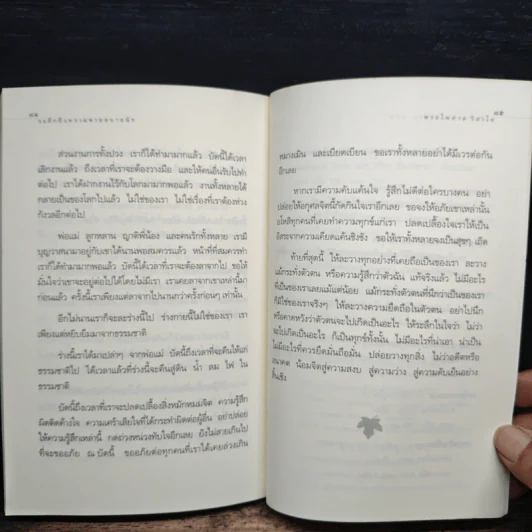 ๗๘
ระลึกถึงความตายสบายนัก
ส่วนงานการทั้งปวง เราก็ได้ทำมามากแล้ว บัดนี้ได้เวลา
เลิกงานแล้ว ถึงเวลาที่เราจะต้องวางมือ และให้คนอื่นรับไปทำ
ต่อไป เราได้ฝากงานไว้กับโลกมามากพอแล้ว งานทั้งหลายได้
กลายเป็นของโลกไปแล้ว ไม่ใช่ของเรา ไม่ใช่เรื่องที่เราต้องห่วง
กังวลอีกต่อไป
พ่อแม่ ลูกหลาน ญาติพี่น้อง และคนรักทั้งหลาย เรามี
บุญวาสนามาอยู่กับเขาได้นานพอสมควรแล้ว หน้าที่ที่สมควรทำ
เราก็ได้ทำมามากแล้ว บัดนี้ได้เวลาที่เราจะต้องลาจากไป ขอให้
มั่นใจว่าเขาจะอยู่ต่อไปได้โดยไม่มีเรา เราเคยลาจากเขาเหล่านี้มา
ก่อนแล้ว ครั้งนี้เราเพียงแต่ลาจากไปนานกว่าครั้งก่อนๆ เท่านั้น
อีกไม่นานเราก็จะละร่างนี้ไป ร่างกายนี้ไม่ใช่ของเรา เรา
เพียงแต่หยิบยืมมาจากธรรมชาติ
ร่างนี้เราได้มาเปล่าๆ จากพ่อแม่ บัดนี้ถึงเวลาที่จะคืนให้แก่
ธรรมชาติไป ได้เวลาแล้วที่ร่างนี้จะคืนสู่ดิน น้ำ ลม ไฟ ใน
ธรรมชาติ
บัดนี้ถึงเวลาที่เราจะปลดเปลื้องสิ่งหมักหมมจิต ความรู้สึก
ผิดติดค้างใจ ความเศร้าเสียใจที่ได้กระทำผิดต่อผู้อื่น อย่าปล่อย
ให้ความรู้สึกเหล่านี้ กดถ่วงหน่วงทับใจอีกเลย ยังไม่สายเกินไป
ที่จะขออภัย ณ บัดนี้ ขออภัยต่อทุกคนที่เราได้เคยล่วงเกิน
พระไพศาล วิสาโล
๗๙
หมางเมิน และเบียดเบียน ขอเราทั้งหลายอย่าได้มีเวรต่อกัน
อีกเลย
หากเรามีความคับแค้นใจ รู้สึกไม่ดีต่อใครบางคน อย่า
ปล่อยให้อกุศลจิตนี้กัดกินใจเราอีกเลย ขอจงให้อภัยเขาเหล่านั้น
อโหสิทุกคนที่เคยทำความทุกข์แก่เรา ปลดเปลื้องใจเราให้เป็น
อิสระจากความเคียดแค้นชิงชัง ขอให้เราทั้งหลายจงเป็นสุขๆ เถิด
ท้ายที่สุดนี้ ให้ละวางทุกอย่างที่เคยถือเป็นของเรา ละวาง
แม้กระทั่งตัวตน หรือความรู้สึกว่าตัวฉัน แท้จริงแล้ว ไม่มีอะไร
ที่เป็นของเราเลยแม้แต่น้อย แม้กระทั่งตัวตนที่นึกว่าเป็นของเรา
ก็มิใช่ของเราจริงๆ ให้ละวางความยึดถือในตัวตน อย่าไปนึก
หรือคาดหวังว่าตัวตนจะไปเกิดเป็นอะไร ให้ระลึกในใจว่า ไม่ว่า
จะไปเกิดเป็นอะไร ก็เป็นทุกข์ทั้งนั้น ไม่มีอะไรที่น่าเอา น่าเป็น
ไม่มีอะไรที่ควรยึดมั่นถือมั่น ปล่อยวางทุกสิ่ง ไม่ว่าอดีตหรือ
อนาคต น้อมจิตสู่ความสงบ สู่ความว่าง สู่ความดับเย็นอย่าง
สิ้นเชิง